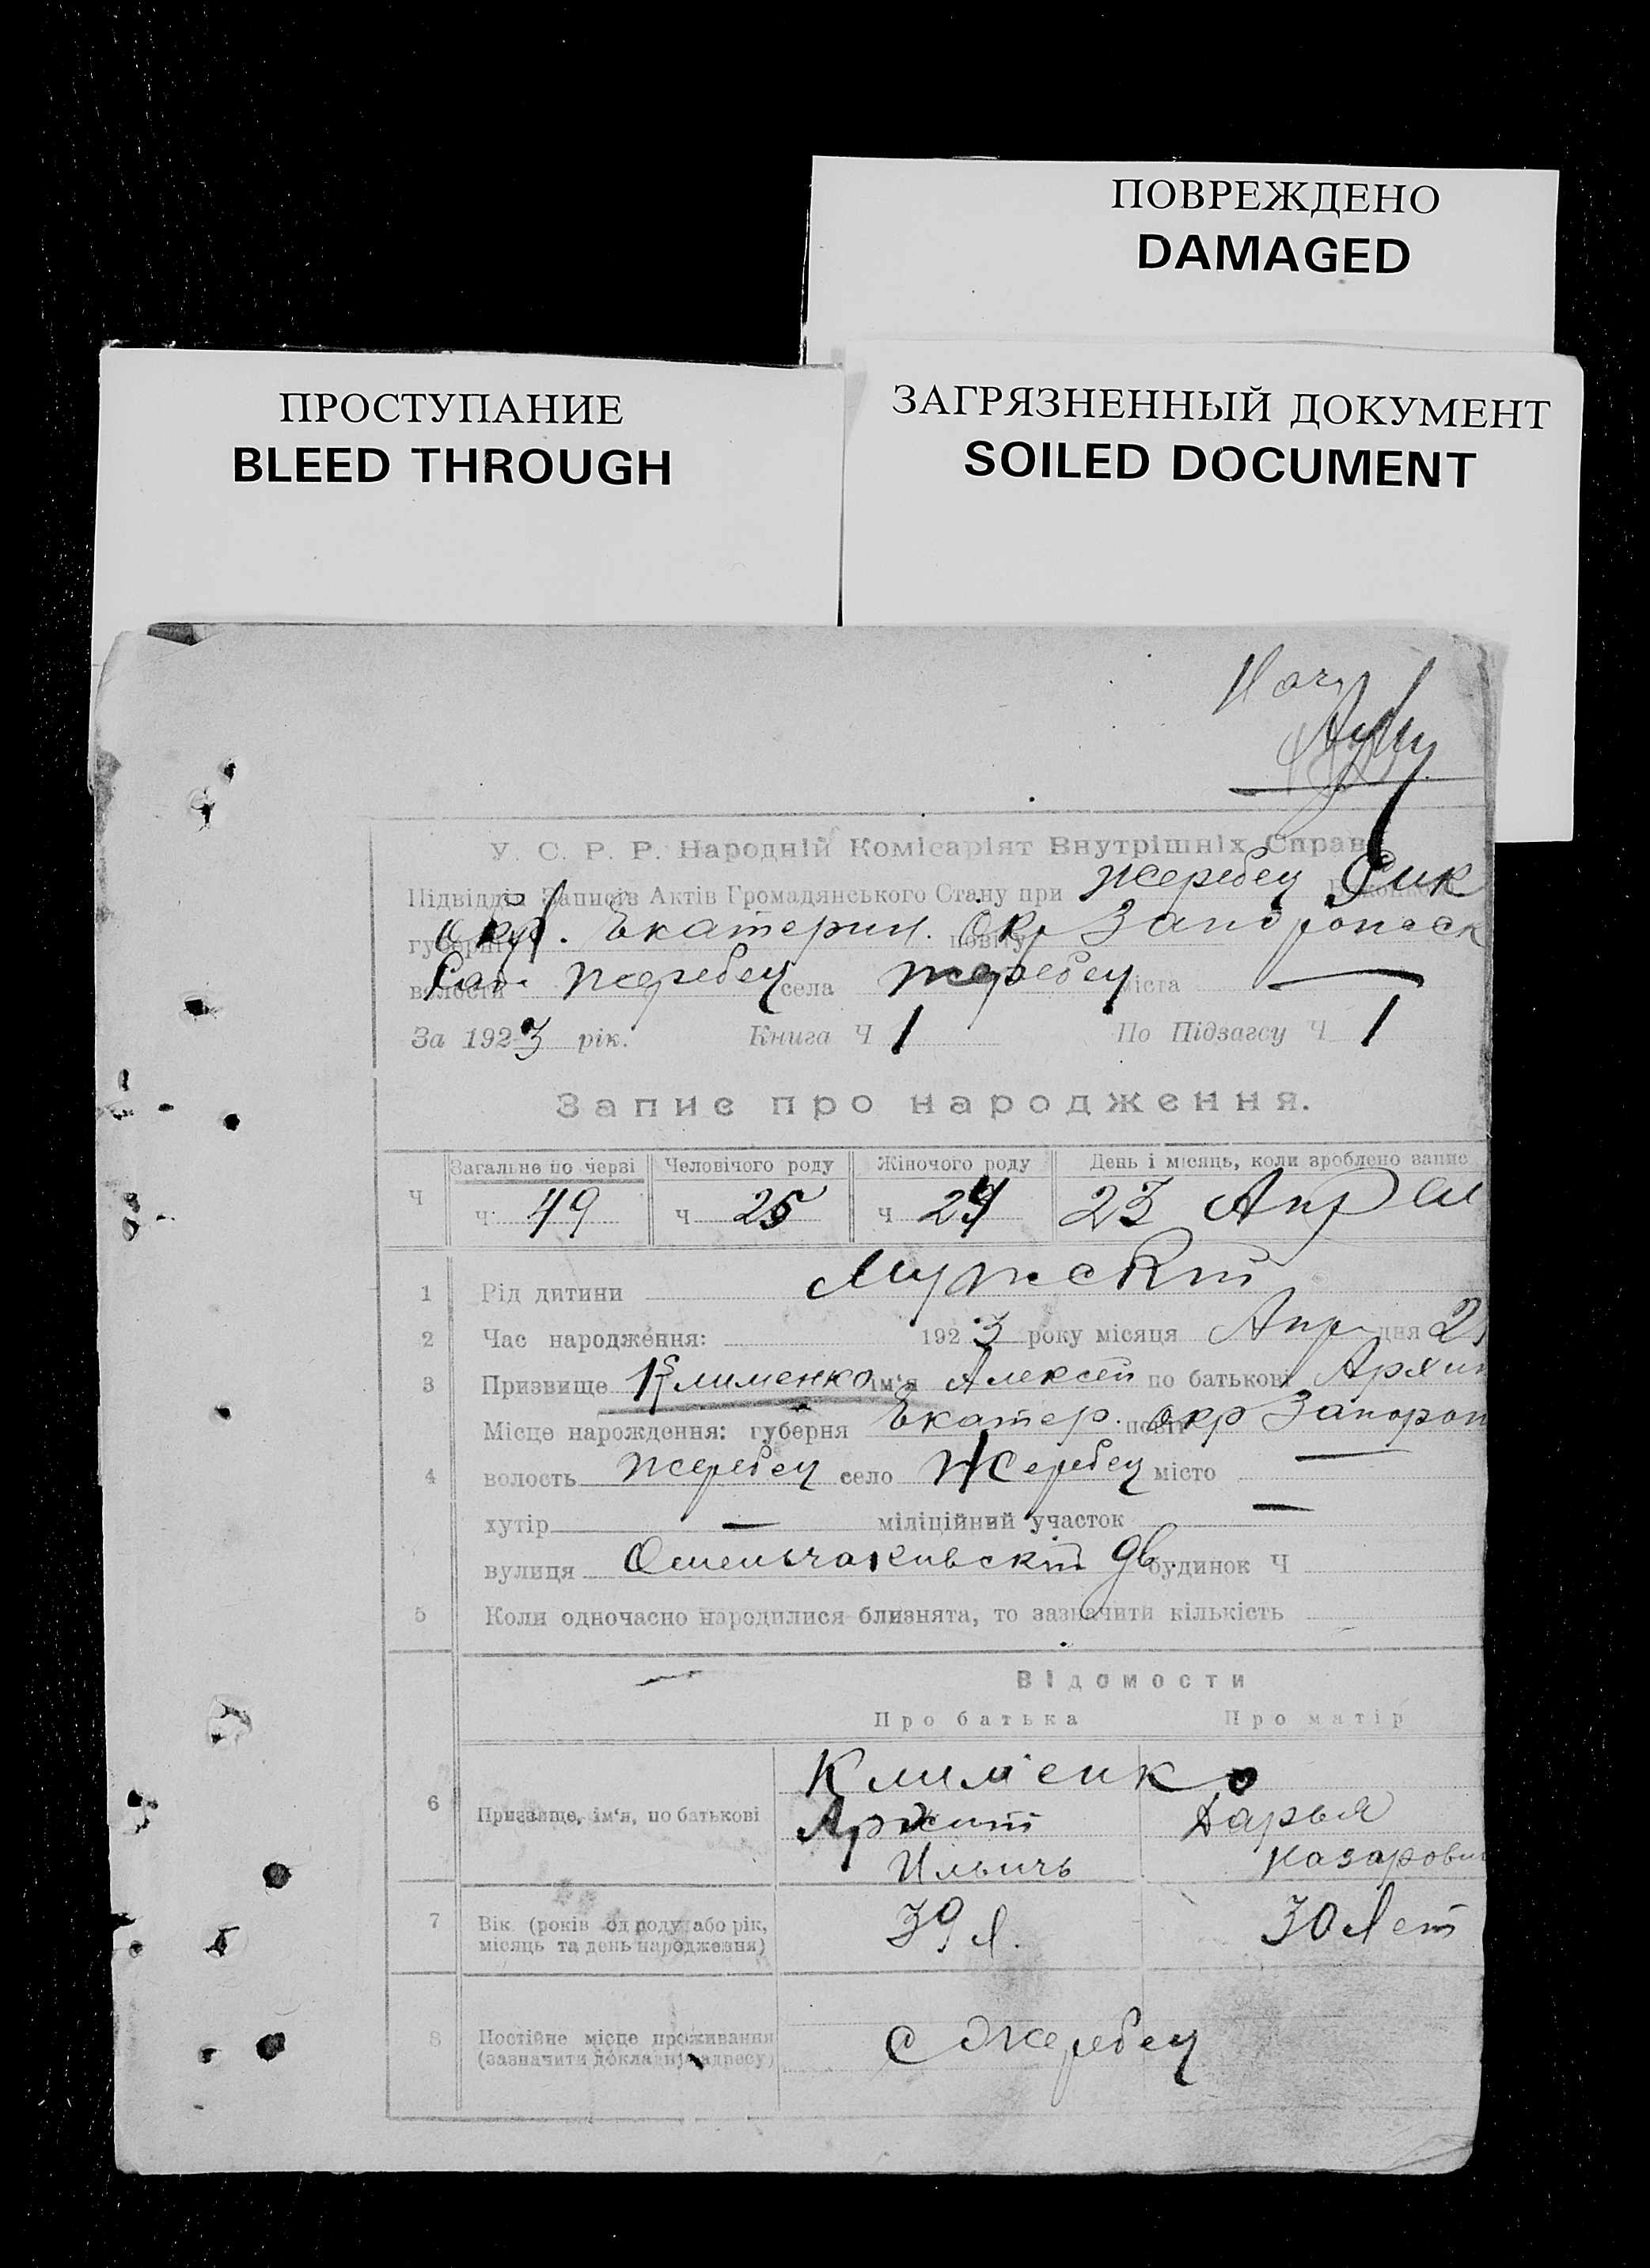 ПОВРЕЖДЕНО
DAMAGED
ПРОСТУПАНИЕ
BLEED THROUGH
ЗАГРЯЗНЕННЫЙ ДОКУМЕНТ
SOILED DOCUMENT
У. С. Р. Р. Народній Комісаріят Внутрішніх Справ
Підвідділ Записів Актів Громадянського Стану при Жеребец
губерні Екатерин. повіту окр Запорожск
волости Жеребец села Жеребец міста —
За 1923 рік. Книга Ч 1 По Підзагсу Ч 1
Запис про народження.
Загальне по черзі Человічого роду Жіночого роду День і місяць, коли зроблено запис
Ч Ч 49 Ч 25 Ч 24 23
1 Рід дитини Мужской
2 Час народження: 1923 року місяця Апр дня
3 Призвище Клименко ім'я Алексей по батькові Архип
Місце народження: губерня Екатер. окр Запорож
4 волость Жеребец село Жеребец місто —
хутір — міліційний участок —
вулиця будинок Ч
5 Коли одночасно народилися близнята, то зазначити кількість
Відомости
Про батька Про матір
Клименко
6 Призвище, ім'я, по батькові Архип Дарья
Ильичь Назаровн
7 Вік (років од роду або рік, 39 л. 30 лет
місяць та день народження)
8 Постійне місце проживання с Жеребец
(зазначити докладну адресу)